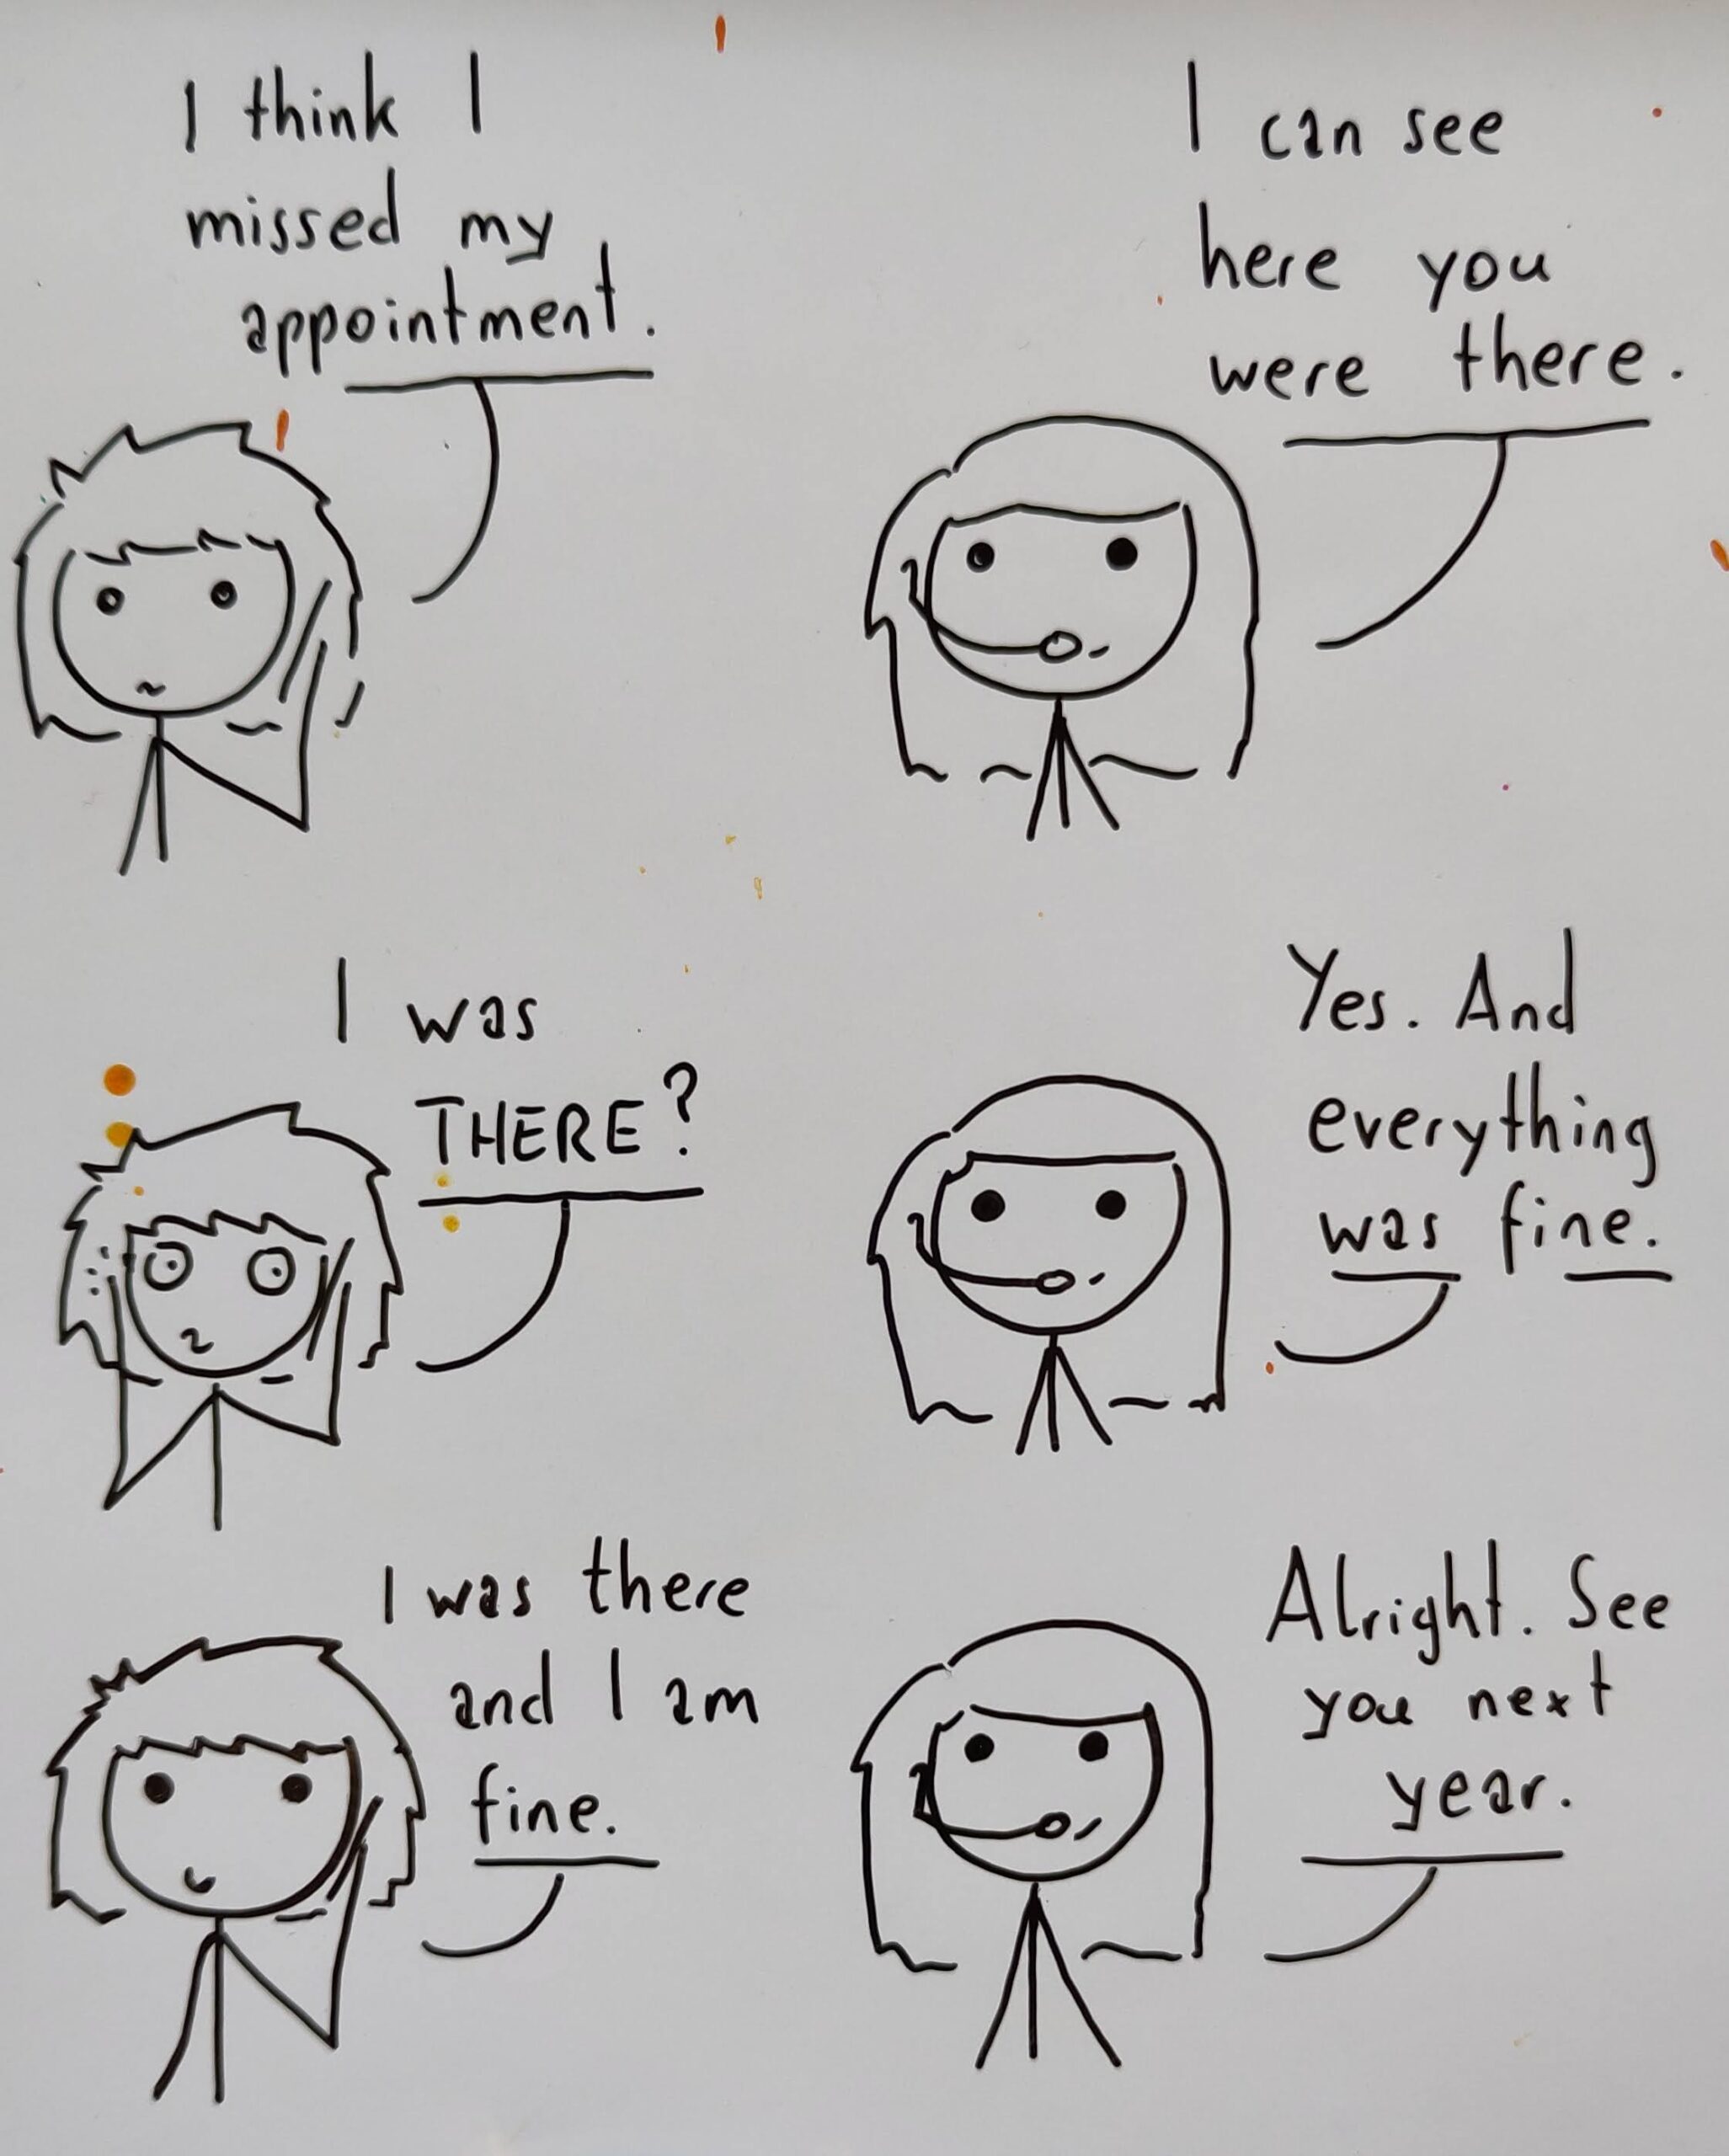 I think I
missed my
appointment.
I can see
here you
were there.
I was
THERE?
Yes. And
everything
was fine.
I was there
and I am
fine.
Alright. See
you next
year.